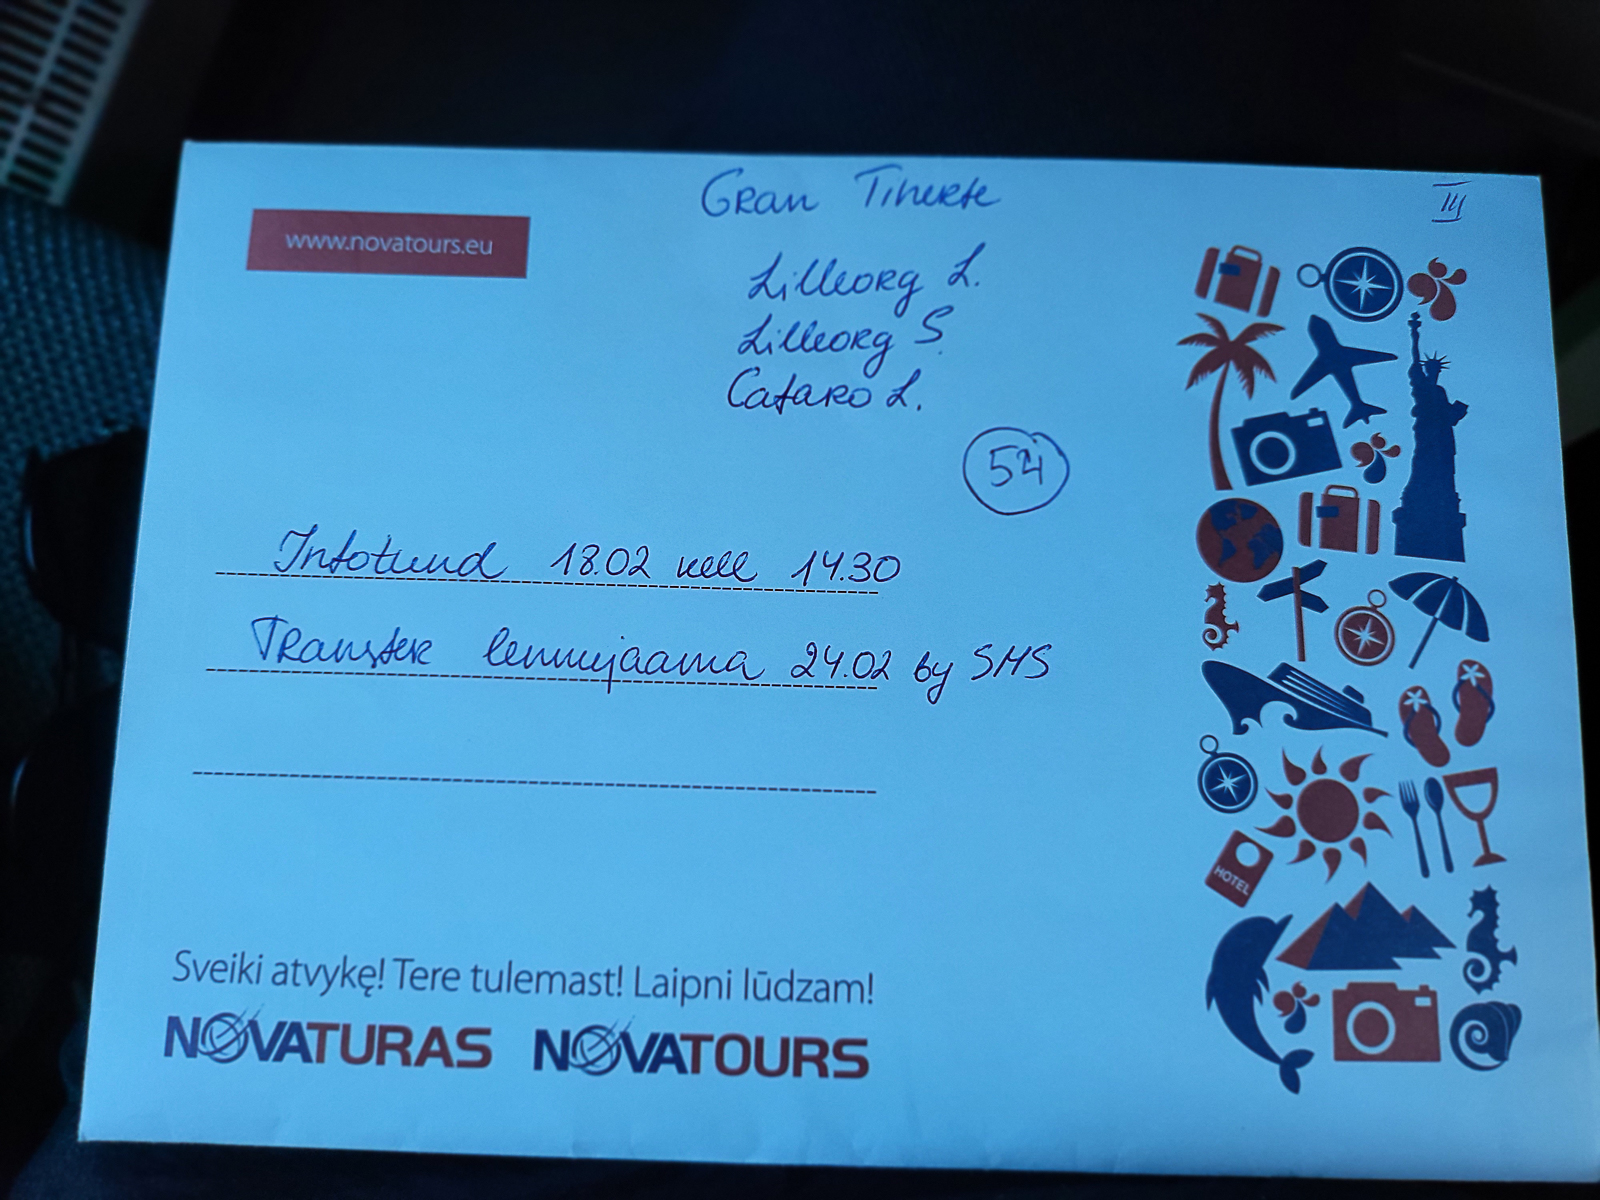 Gran Tinerfe
III
www.novatours.eu
Lilleorg L.
Lilleorg S.
Cataro L.
54
Infotund 18.02 kell 14.30
Transfer lennujaama 24.02 by SMS
HOTEL
Sveiki atvykę! Tere tulemast! Laipni lūdzam!
NOVATURAS NOVATOURS